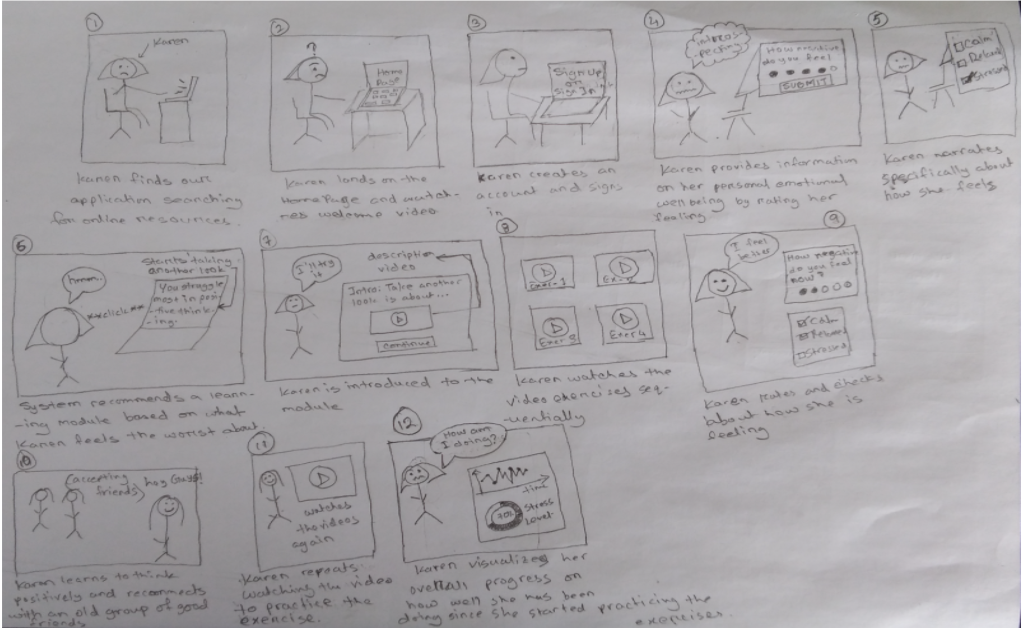 1
Karen
Karen finds our
application searching
for online resources.
2
?
Home
Page
Karen lands on the
HomePage and watch-
res welcome video
3
Sign Up
or
Sign In
Karen creates an
account and signs
in
4
intros-
pecting
How negative
do you feel
SUBMIT
Karen provides information
on her personal emotional
wellbeing by rating her
feeling
5
Calm
Relaxed
Stressed
Karen narrates
specifically about
how she feels
6
hmmm..
**click**
Starts taking
another look
You struggle
most in posi-
-tive think-
-ing.
System recommends a learn-
-ing module based on what
Karen feels the worst about.
7
I'll try
it
description
video
Intro: Take another
look is about...
continue
Karen is introduced to the
module
8
Exer-1
Ex-2
Exer 3
Exer 4
Karen watches the
video exercises seq-
uentially
9
I feel
better
How negative
do you feel
now?
Calm
Relaxed
Stressed
Karen rates and checks
about how she is
feeling
10
(accepting
friends)
hey Guys!
Karen learns to think
positively and reconnects
with an old group of good
friends
11
watches
the videos
again
Karen repeats
watching the video
to practice the
exercise.
12
How am
I doing?
time
Stress
Level
Karen visualizes her
overall progress on
how well she has been
doing since she started practicing the
exercises.